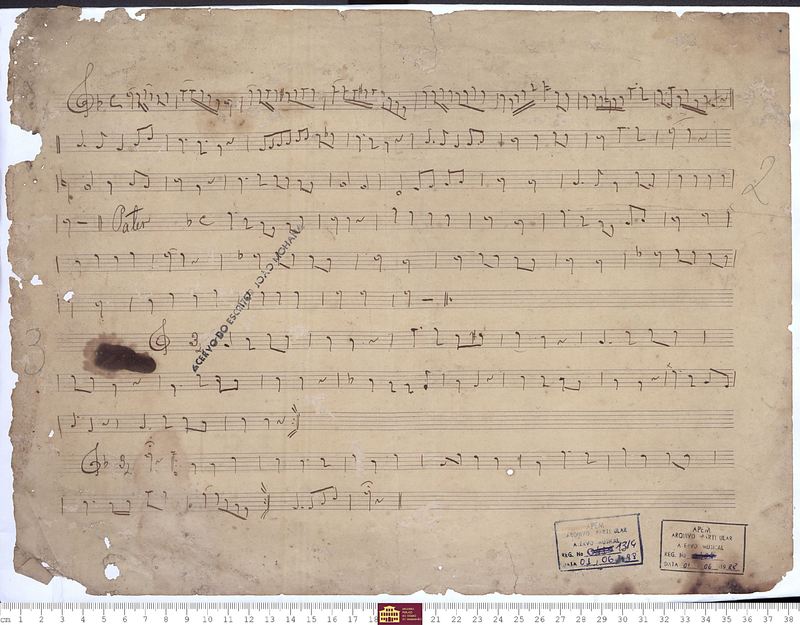 2
Pater
ACERVO DO ESCRITOR JOÃO MOHANA
3
APEM
ARQUIVO PARTICULAR
ACERVO MUSICAL
REG. No 1314
DATA 01, 06, 1998
APEM
ARQUIVO PARTICULAR
ACERVO MUSICAL
REG. No
DATA 01 06 1998
cm 1 2 3 4 5 6 7 8 9 10 11 12 13 14 15 16 17 18 20 21 22 23 24 25 26 27 28 29 30 31 32 33 34 35 36 37 38